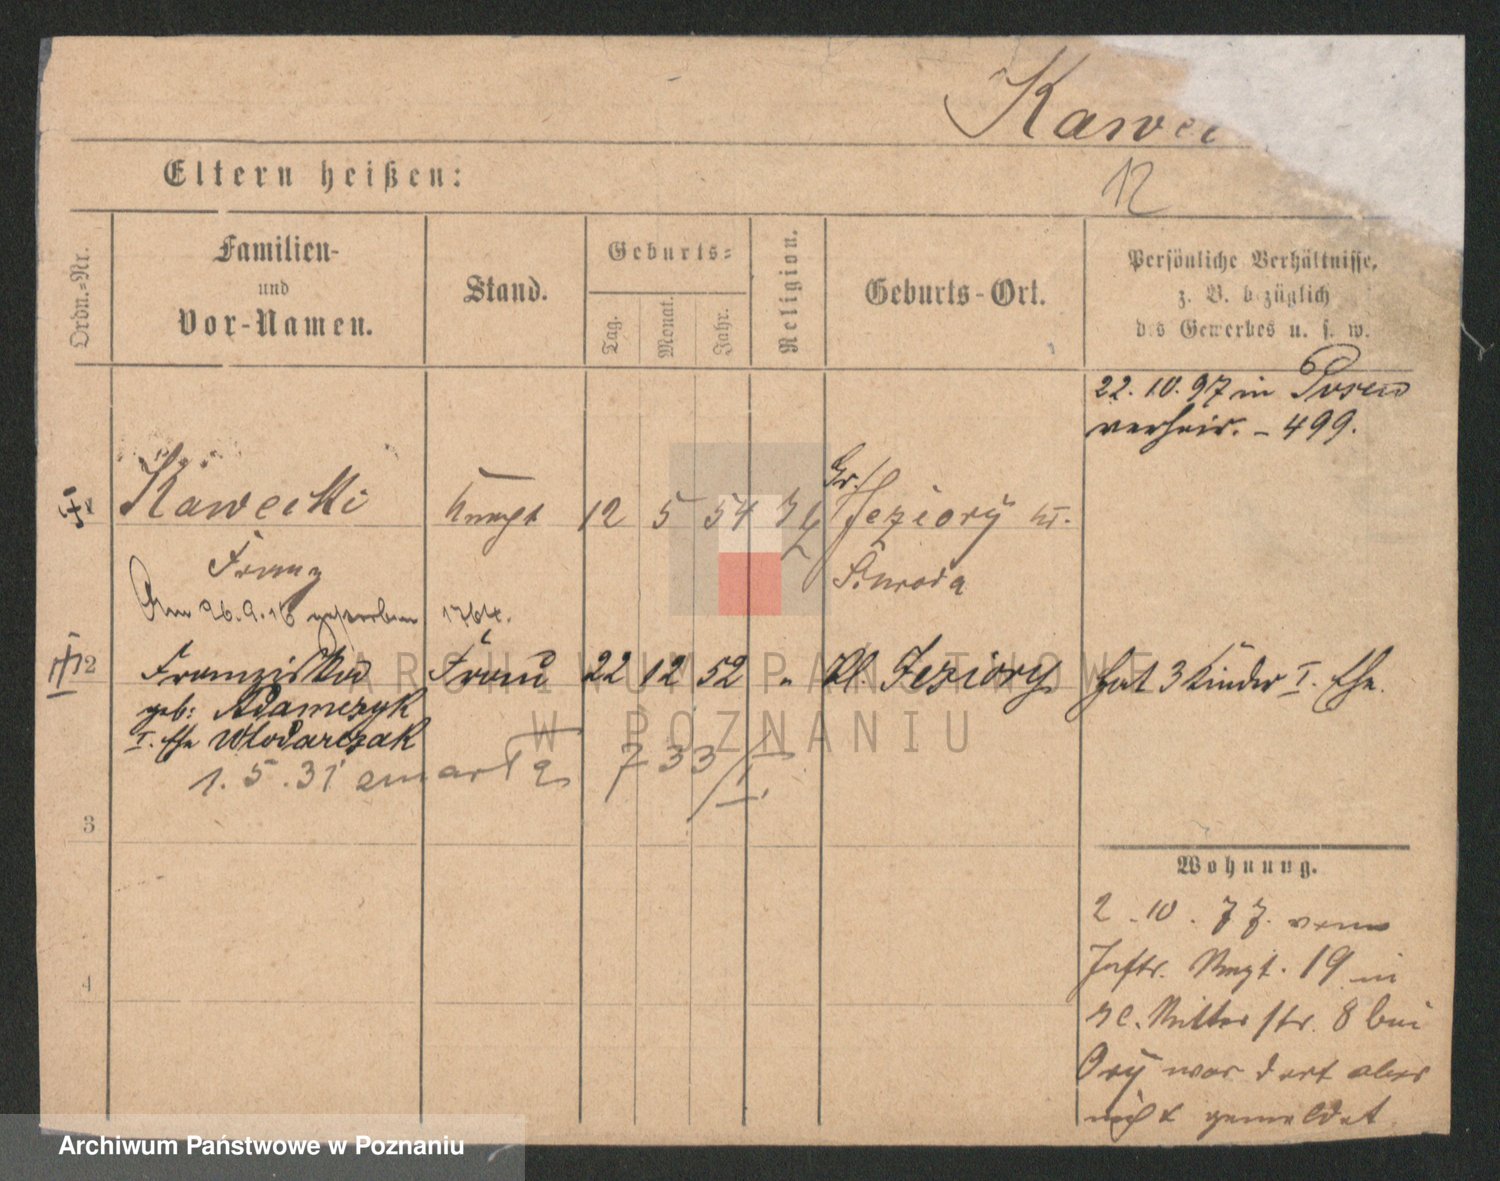 Kawec
12
Eltern heißen:
Ordn.-Nr.
Familien-
und
Vor-Namen.
Stand.
Geburts-
Tag.
Monat.
Jahr.
Religion.
Geburts-Ort.
Persönliche Verhältnisse,
z. B. bezüglich
des Gewerbes u. s. w.
22. 10. 97 in Posen
verheir. - 499.
Kawecki Knecht 12 5 54 Gr. Jeziory
Franz Schroda
Am 26.9.16 gestorben 1764.
2 Franziska Frau 22 12 52 " Kl. Jeziory hat 3 Kinder I. Ehe.
geb: Adamczyk
I. Ehe Wlodarczak
1. 5. 31 zmarła 733/I
3
4
Wohnung.
2. 10. 77. vom
Inftr. Regt. 19 in
Ritter str. 8 bei
war dort aber
nicht gemeldet
ARCHIWUM PAŃSTWOWE
W POZNANIU
Archiwum Państwowe w Poznaniu